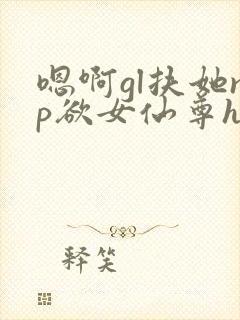 嗯啊gl扶她n
p欲女仙尊h
释笑